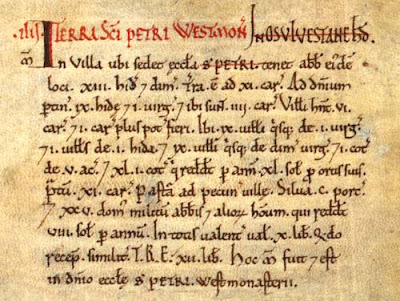 IIII. TERRA SCI PETRI WESTMON̄ IN OSULVESTANE HD̄.
M̄ In Villa ubi sedet æccła S PETRI. tenet abb̄ ei'dē
loci .XIII. hid' 7 dim̄. Tr̄a .ē ad .XI. car'. Ad dn̄ium
ptin' .IX. hidę 7 .I. virg'. 7 ibi sunt .IIII. car'. Vilłi hn̄t .VI.
car'. 7 .I. car' plus pot' fieri. Ibi .IX. vilłi q'sq; de .I. virg'.
7 .I. vilłs de .I. hida. 7 .IX. vilłi q'sq; de dim̄ virg'. 7 .I. cot'
de .V. ac'. 7 XL.I. cot' qui reddt' p̄ ann̄ .XL. sol' p̄ ortis suis.
P̄tū .XI. car'. Pasťa ad pecun' villæ. Silva .C. porc'.
7 XXV. dom' militū abb̄is 7 alioꝝ hōum. qui reddt'
VIII. sol' p̄ annū. In totis valent' val' .X. lib'. Q̄do
recep̄. similit'. T.R.E. XII. lib'. Hoc M̄ fuit 7 est
in dn̄io æccłę S' PETRI. Westmonasterii.